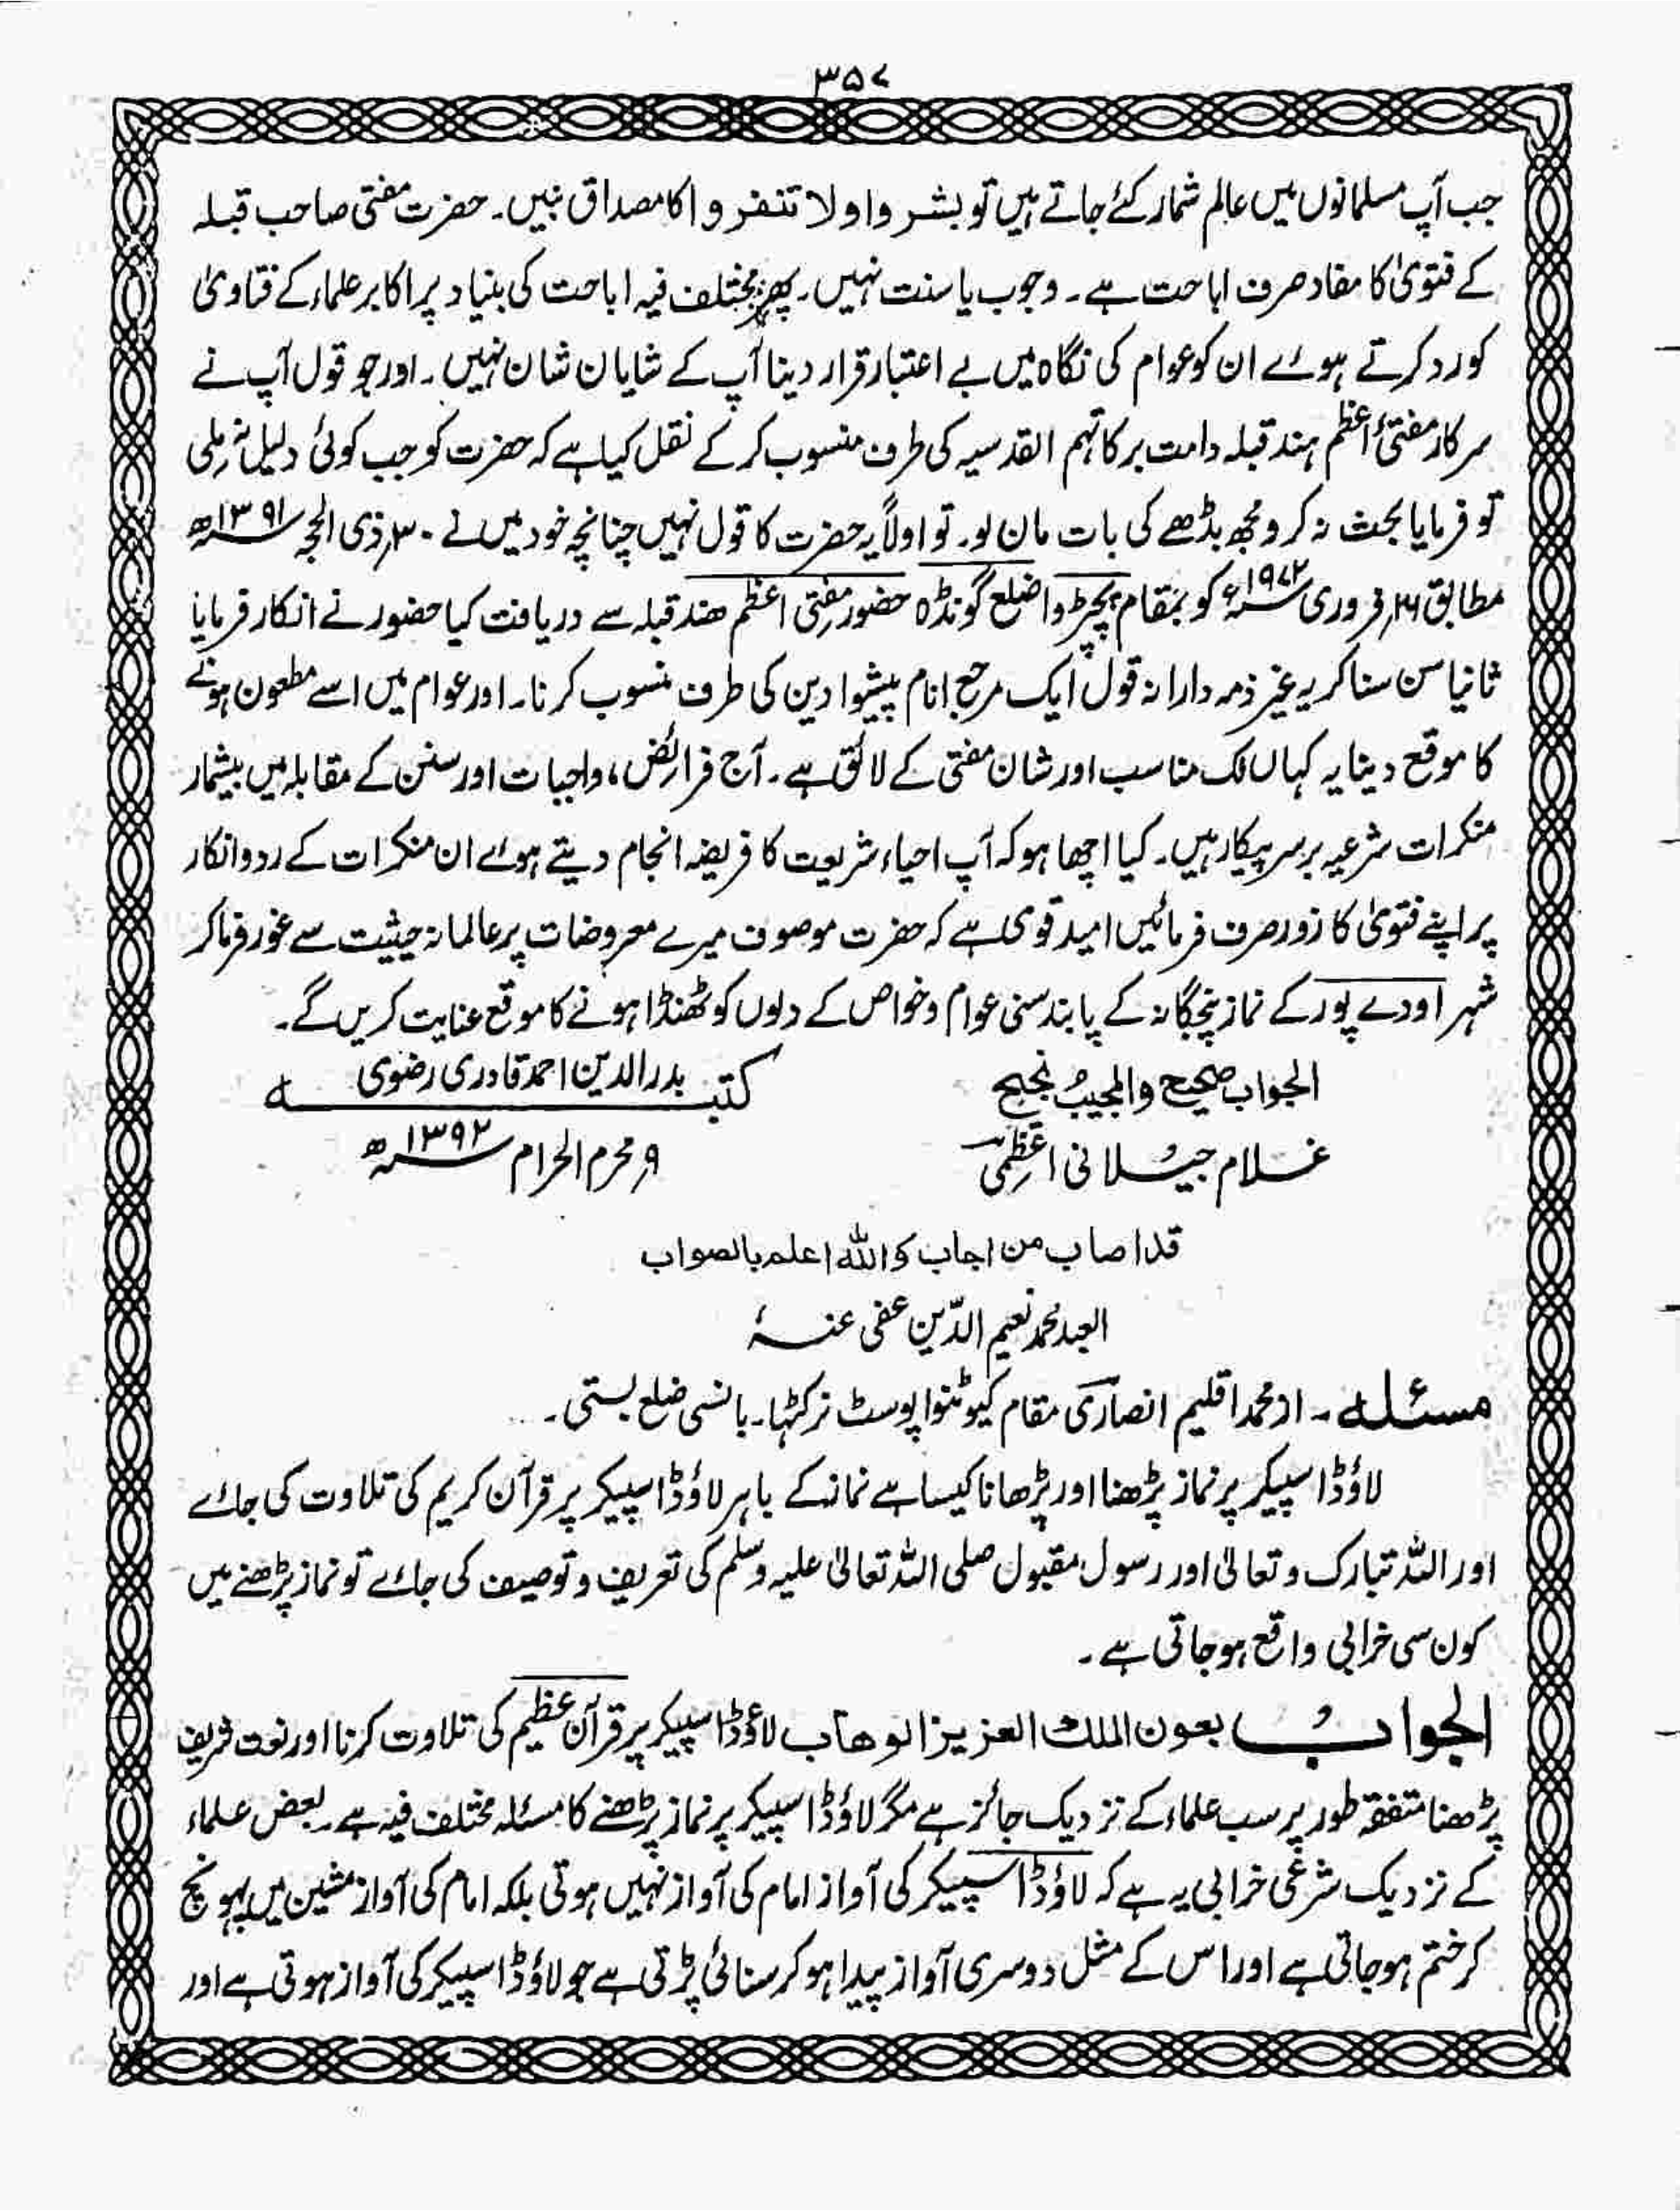 ۳۵۷
جب آپ مسلمانوں میں عالم شمار کئے جاتے ہیں تو بشروا ولا تنفروا کا مصداق بنیں۔ حضرت مفتی صاحب قبلہ
کے فتویٰ کا مفاد صرف اباحت ہے۔ وجوب یا سنت نہیں۔ پھر مختلف فیہ اباحت کی بنیاد پر اکابر علماء کے فتاویٰ
کو رد کرتے ہوئے ان کو عوام کی نگاہ میں بے اعتبار قرار دینا آپ کے شایان شان نہیں۔ اور جو قول آپ نے
سرکار مفتئ اعظم ہند قبلہ دامت برکاتہم القدسیہ کی طرف منسوب کر کے نقل کیا ہے کہ حضرت کو جب کوئی دلیل نہ ملی
تو فرمایا بحث نہ کرو مجھ بڈھے کی بات مان لو۔ تو اولاً یہ حضرت کا قول نہیں چنانچہ خود میں نے ۳۰ ذی الحجہ ۱۳۹۱ھ
مطابق ۱۶ فروری ۱۹۷۲ء کو بمقام پچپڑوا ضلع گونڈہ حضور مفتی اعظم ھند قبلہ سے دریافت کیا حضور نے انکار فرمایا
ثانیا سن سنا کر یہ غیر ذمہ دارانہ قول ایک مرجع انام پیشوا دین کی طرف منسوب کرنا۔ اور عوام میں اسے مطعون ہونے
کا موقع دینا یہ کہاں تک مناسب اور شان مفتی کے لائق ہے۔ آج فرائض، واجبات اور سنن کے مقابلہ میں بیشمار
منکرات شرعیہ برسرپیکار ہیں۔ کیا اچھا ہو کہ آپ احیاء شریعت کا فریضہ انجام دیتے ہوئے ان منکرات کے رد وانکار
پر اپنے فتویٰ کا زور صرف فرمائیں امید قوی ہے کہ حضرت موصوف میرے معروضات پر عالمانہ حیثیت سے غور فرما کر
شہر اودے پور کے نماز پنجگانہ کے پابند سنی عوام وخواص کے دلوں کو ٹھنڈا ہونے کا موقع عنایت کریں گے۔
الجواب صحیح والمجیب نجیح
کتبہ بدرالدین احمد قادری رضوی
غلام جیلانی اعظمی
۹ محرم الحرام ۱۳۹۲ھ
قد اصاب من اجاب واللہ اعلم بالصواب
العبد محمد نعیم الدّین عفی عنہٗ
مسئلہ۔ از محمد اقلیم انصاری مقام پوسٹ نرکٹہا۔ بانسی ضلع بستی۔
لاؤڈ اسپیکر پر نماز پڑھنا اور پڑھانا کیسا ہے نماز کے باہر لاؤڈ اسپیکر پر قرآن کریم کی تلاوت کی جائے
اور اللہ تبارک وتعالیٰ اور رسول مقبول صلی اللہ تعالیٰ علیہ وسلم کی تعریف وتوصیف کی جائے تو نماز پڑھنے میں
کون سی خرابی واقع ہو جاتی ہے۔
الجوابُ بعون الملک العزیز الوھاب لاءوڈ اسپیکر پر قرآن عظیم کی تلاوت کرنا اور نعت شریف
پڑھنا متفقہ طور پر سب علماء کے نزدیک جائز ہے مگر لاؤڈ اسپیکر پر نماز پڑھنے کا مسئلہ مختلف فیہ ہے۔ بعض علماء
کے نزدیک شرعی خرابی یہ ہے کہ لاؤڈ اسپیکر کی آواز امام کی آواز نہیں ہوتی بلکہ امام کی آواز مشین میں پہونچ
کر ختم ہو جاتی ہے اور اس کے مثل دوسری آواز پیدا ہو کر سنائی پڑتی ہے جو لاؤڈ اسپیکر کی آواز ہوتی ہے اور